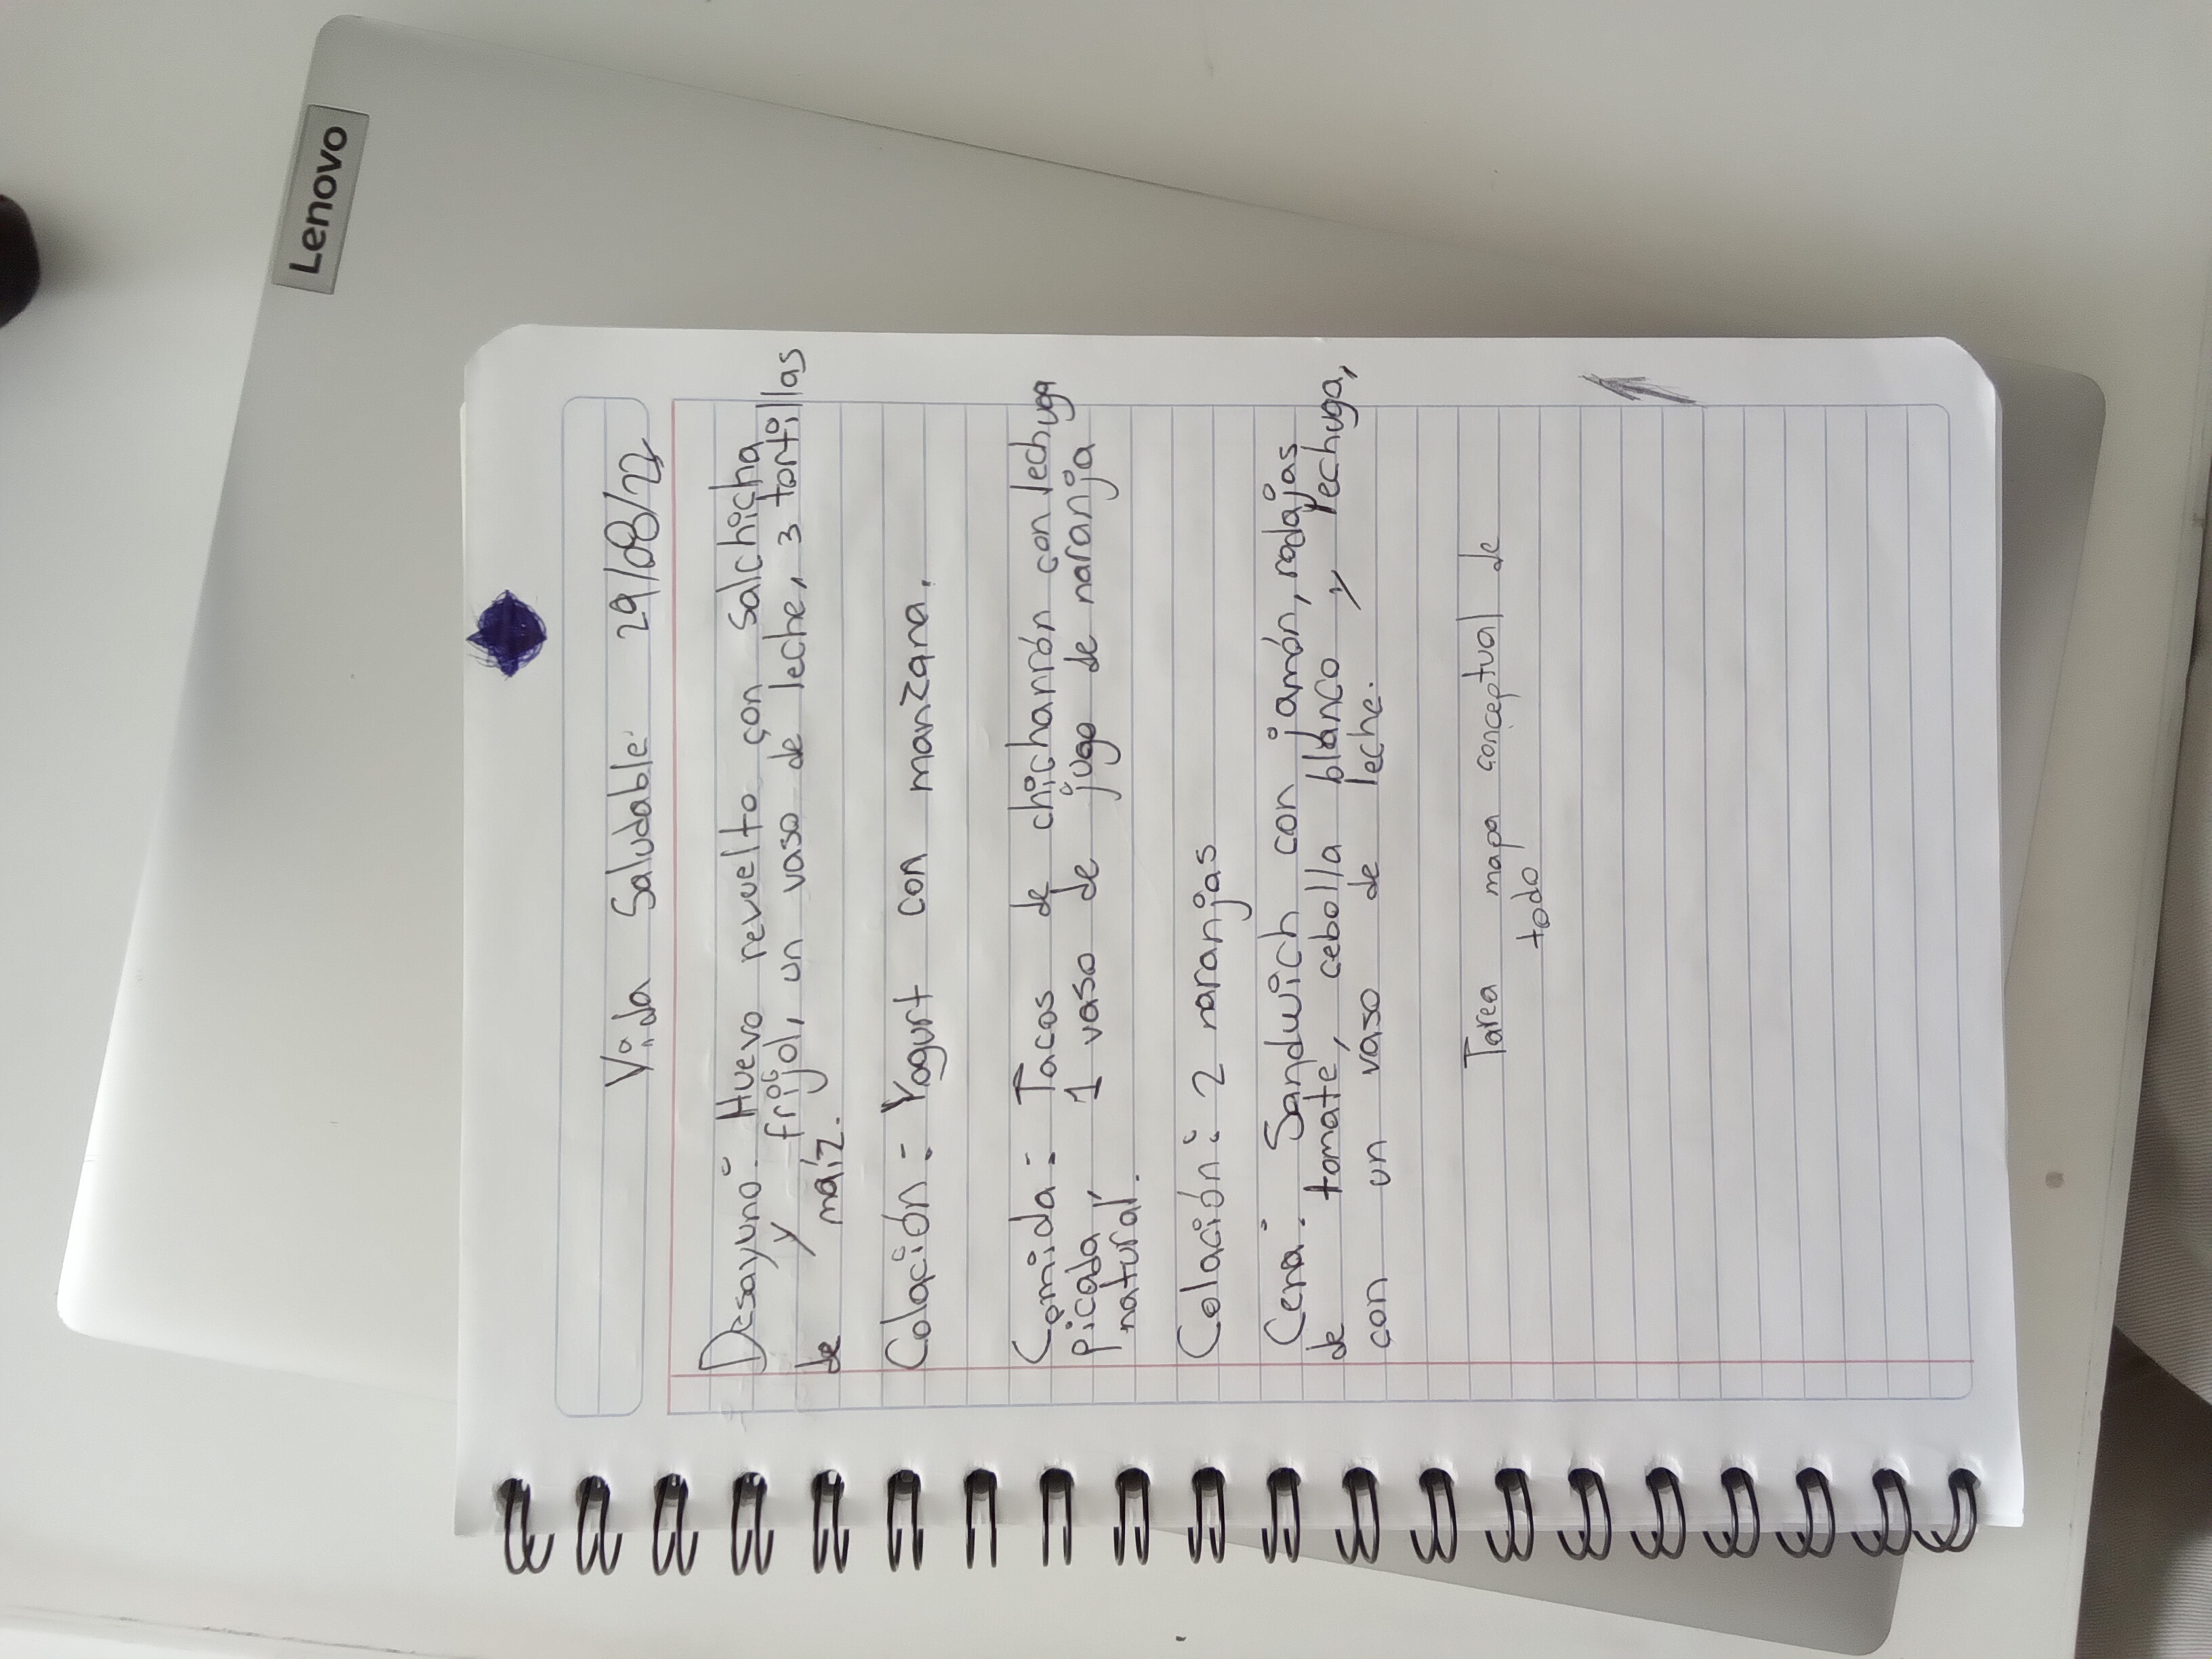 Lenovo
Vida Saludable: 29/08/22
Desayuno: Huevo revuelto con salchicha
y frijol, un vaso de leche, 3 tortillas
de maíz.
Colación: Yogurt con manzana.
Comida: Tacos de chicharrón con lechuga
picada, 1 vaso de jugo de naranja
natural.
Colación: 2 naranjas
Cena: Sandwich con jamón, rodajas
de tomate, cebolla blanco y lechuga,
con un vaso de leche.
Tarea mapa conceptual de
todo